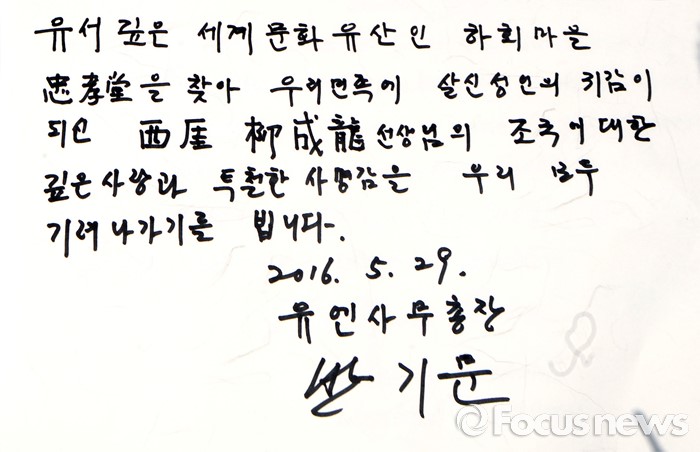 유서 깊은 세계문화유산인 하회마을
忠孝堂을 찾아 우리민족에 살신성인의 귀감이
되신 西厓 柳成龍선생님의 조국에 대한
깊은 사랑과 투철한 사명감을 우리 모두
기려 나가기를 빕니다.
2016. 5. 29.
유엔사무총장
반기문
Focusnews